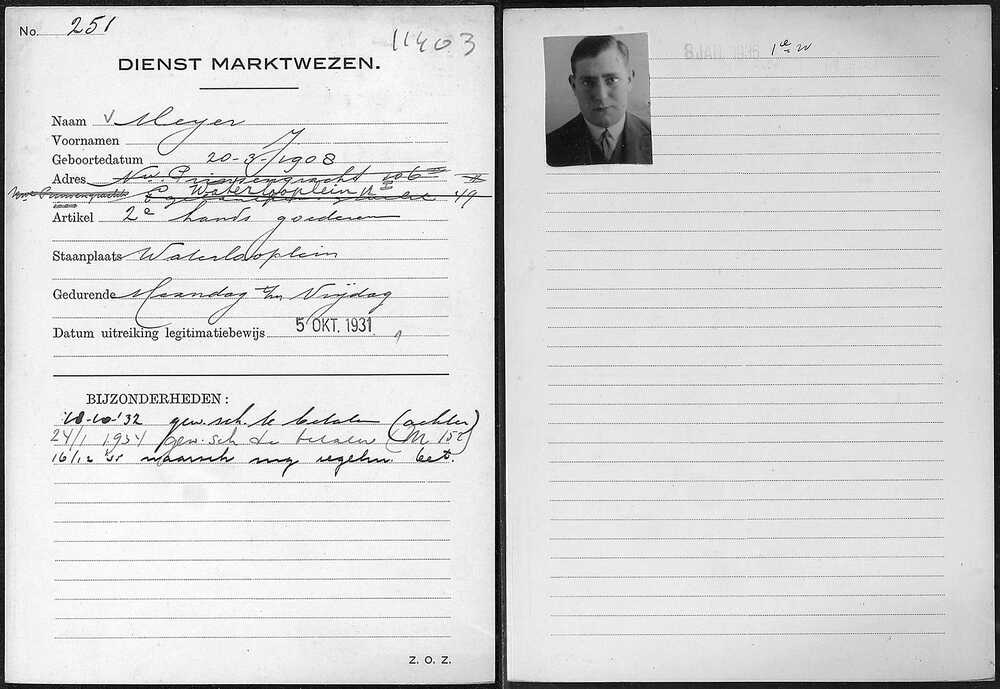 No. 251
11403
DIENST MARKTWEZEN.
Naam v Meyer
Voornamen J
Geboortedatum 20-3-1908
Adres Nw. Prinsengracht 106
Waterlooplein
49
Artikel 2e hands goederen
Staanplaats Waterlooplein
Gedurende Maandag t/m Vrijdag
Datum uitreiking legitimatiebewijs 5 OKT. 1931
BIJZONDERHEDEN:
18-10-'32 gew. sch. te betalen (achter)
24/1 1934 gew. sch te betalen (M 152)
16/12 waarsch regelm. bet.
Z. O. Z.
8 JAN 1936 1e w